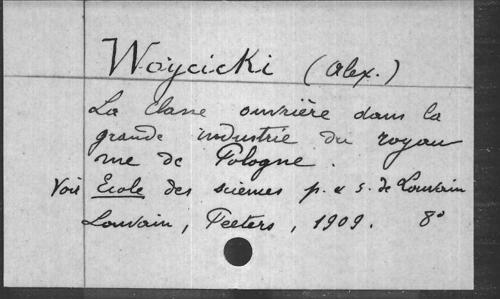 Woycicki (Alex.)
La classe ouvrière dans la
grande industrie du royau
me de Pologne.
Voir Ecole des sciences p. & s. de Louvain
Louvain, Peeters, 1909. 8°